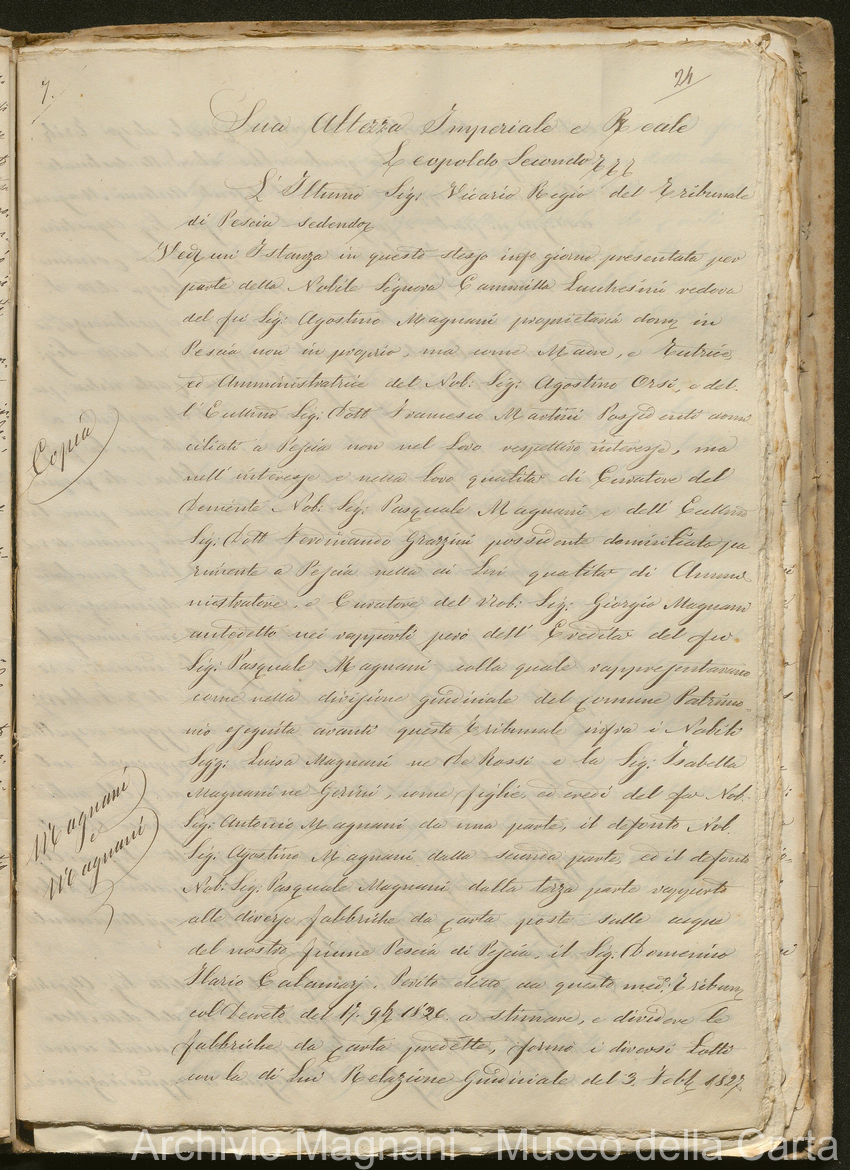 7.
24
Sua Altezza Imperiale e Reale
Leopoldo Secondo
L' Illmo Sig: Vicario Regio del Tribunale
di Pescia sedendo
Ved. un' Istanza in questo stesso inf.o giorno presentata per
parte della Nobile Signora Cammilla Lucchesini vedova
del fu Sig: Agostino Magnani proprietaria dom. in
Pescia non in proprio, ma come Madre, e Tutrice,
ed Amministratrice del Nob: Sig: Agostino Orsi, e del-
l' Eccllmo Sig: Dott Francesco Martini Possidenti domi
ciliati a Pescia non nel Loro respettivo interesse, ma
nell' interesse e nella loro qualità di Curatore del
Demente Nob: Sig: Pasquale Magnani e dell' Eccllmo
Sig: Dott Ferdinando Grazzini possidente domiciliato pa
rimente a Pescia nella di Lui qualità di Ammi-
nistratore, e Curatore del Nob: Sig: Giorgio Magnani
antedetto nei rapporti però dell' Eredità del fu
Sig: Pasquale Magnani colla quale rappresentavano
come nella divisione giudiciale del comune Patrimo-
nio eseguita avanti questo Tribunale infra i Nobili
Sigg: Luisa Magnani ne' De Rossi e la Sig: Isabella
Magnani ne' Gerini, come figlie, ed eredi del fu Nob.
Sig: Antonio Magnani da una parte, il defonto Nob.
Sig. Agostino Magnani dalla seconda parte, ed il defonto
Nob: Sig: Pasquale Magnani dalla terza parte rapporto
alle diverse fabbriche da carta poste sulle acque
del nostro fiume Pescia di Pescia, il Sig: Domenico
Ilario Calamari, Perito eletto da questo med: Tribun
col Decreto del 17. 9bre 1826. a stimare, e dividere le
fabbriche da carta predette, formò i diversi Lotti
con la di Lui Relazione Giudiciale del 3. Febb 1827.
Copia
Magnani
e
Magnani
Archivio Magnani - Museo della Carta